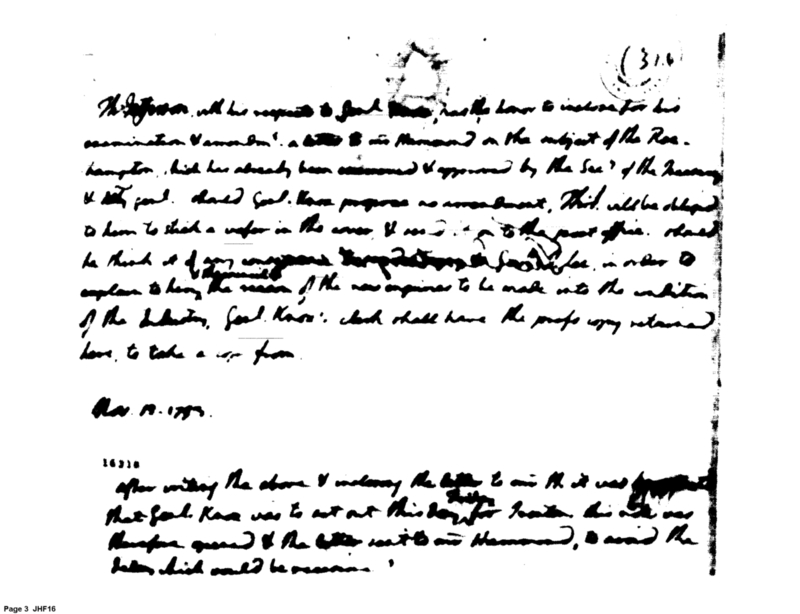 (316
Th: Jefferson, with his respects to Genl. Knox, has the honor to inclose for his
examination & amendmt. a letter to mr Hammond on the subject of the Roe-
hampton, which has already been & approved by the Secy. of the Treasury
& Atty genl. should Genl. Knox propose no amendment, Th:J. will be obliged
to him to stick a wafer in the cover & send it on to the post office. should
he think it of any to Govr. Lee, in order to
explain to him the reason of the new enquiries to be made into the condition
of the Industry, Genl. Knox's clerk shall have the press copy returned
here, to take a copy from.
Nov. 1793.
16218
After writing the above & inclosing the letter to mr H. it was
that Genl. Knox was to set out this day for Trenton this note was
therefore opened & the letter sent to mr Hammond, to avoid the
delay which would be
Page 3 JHF16